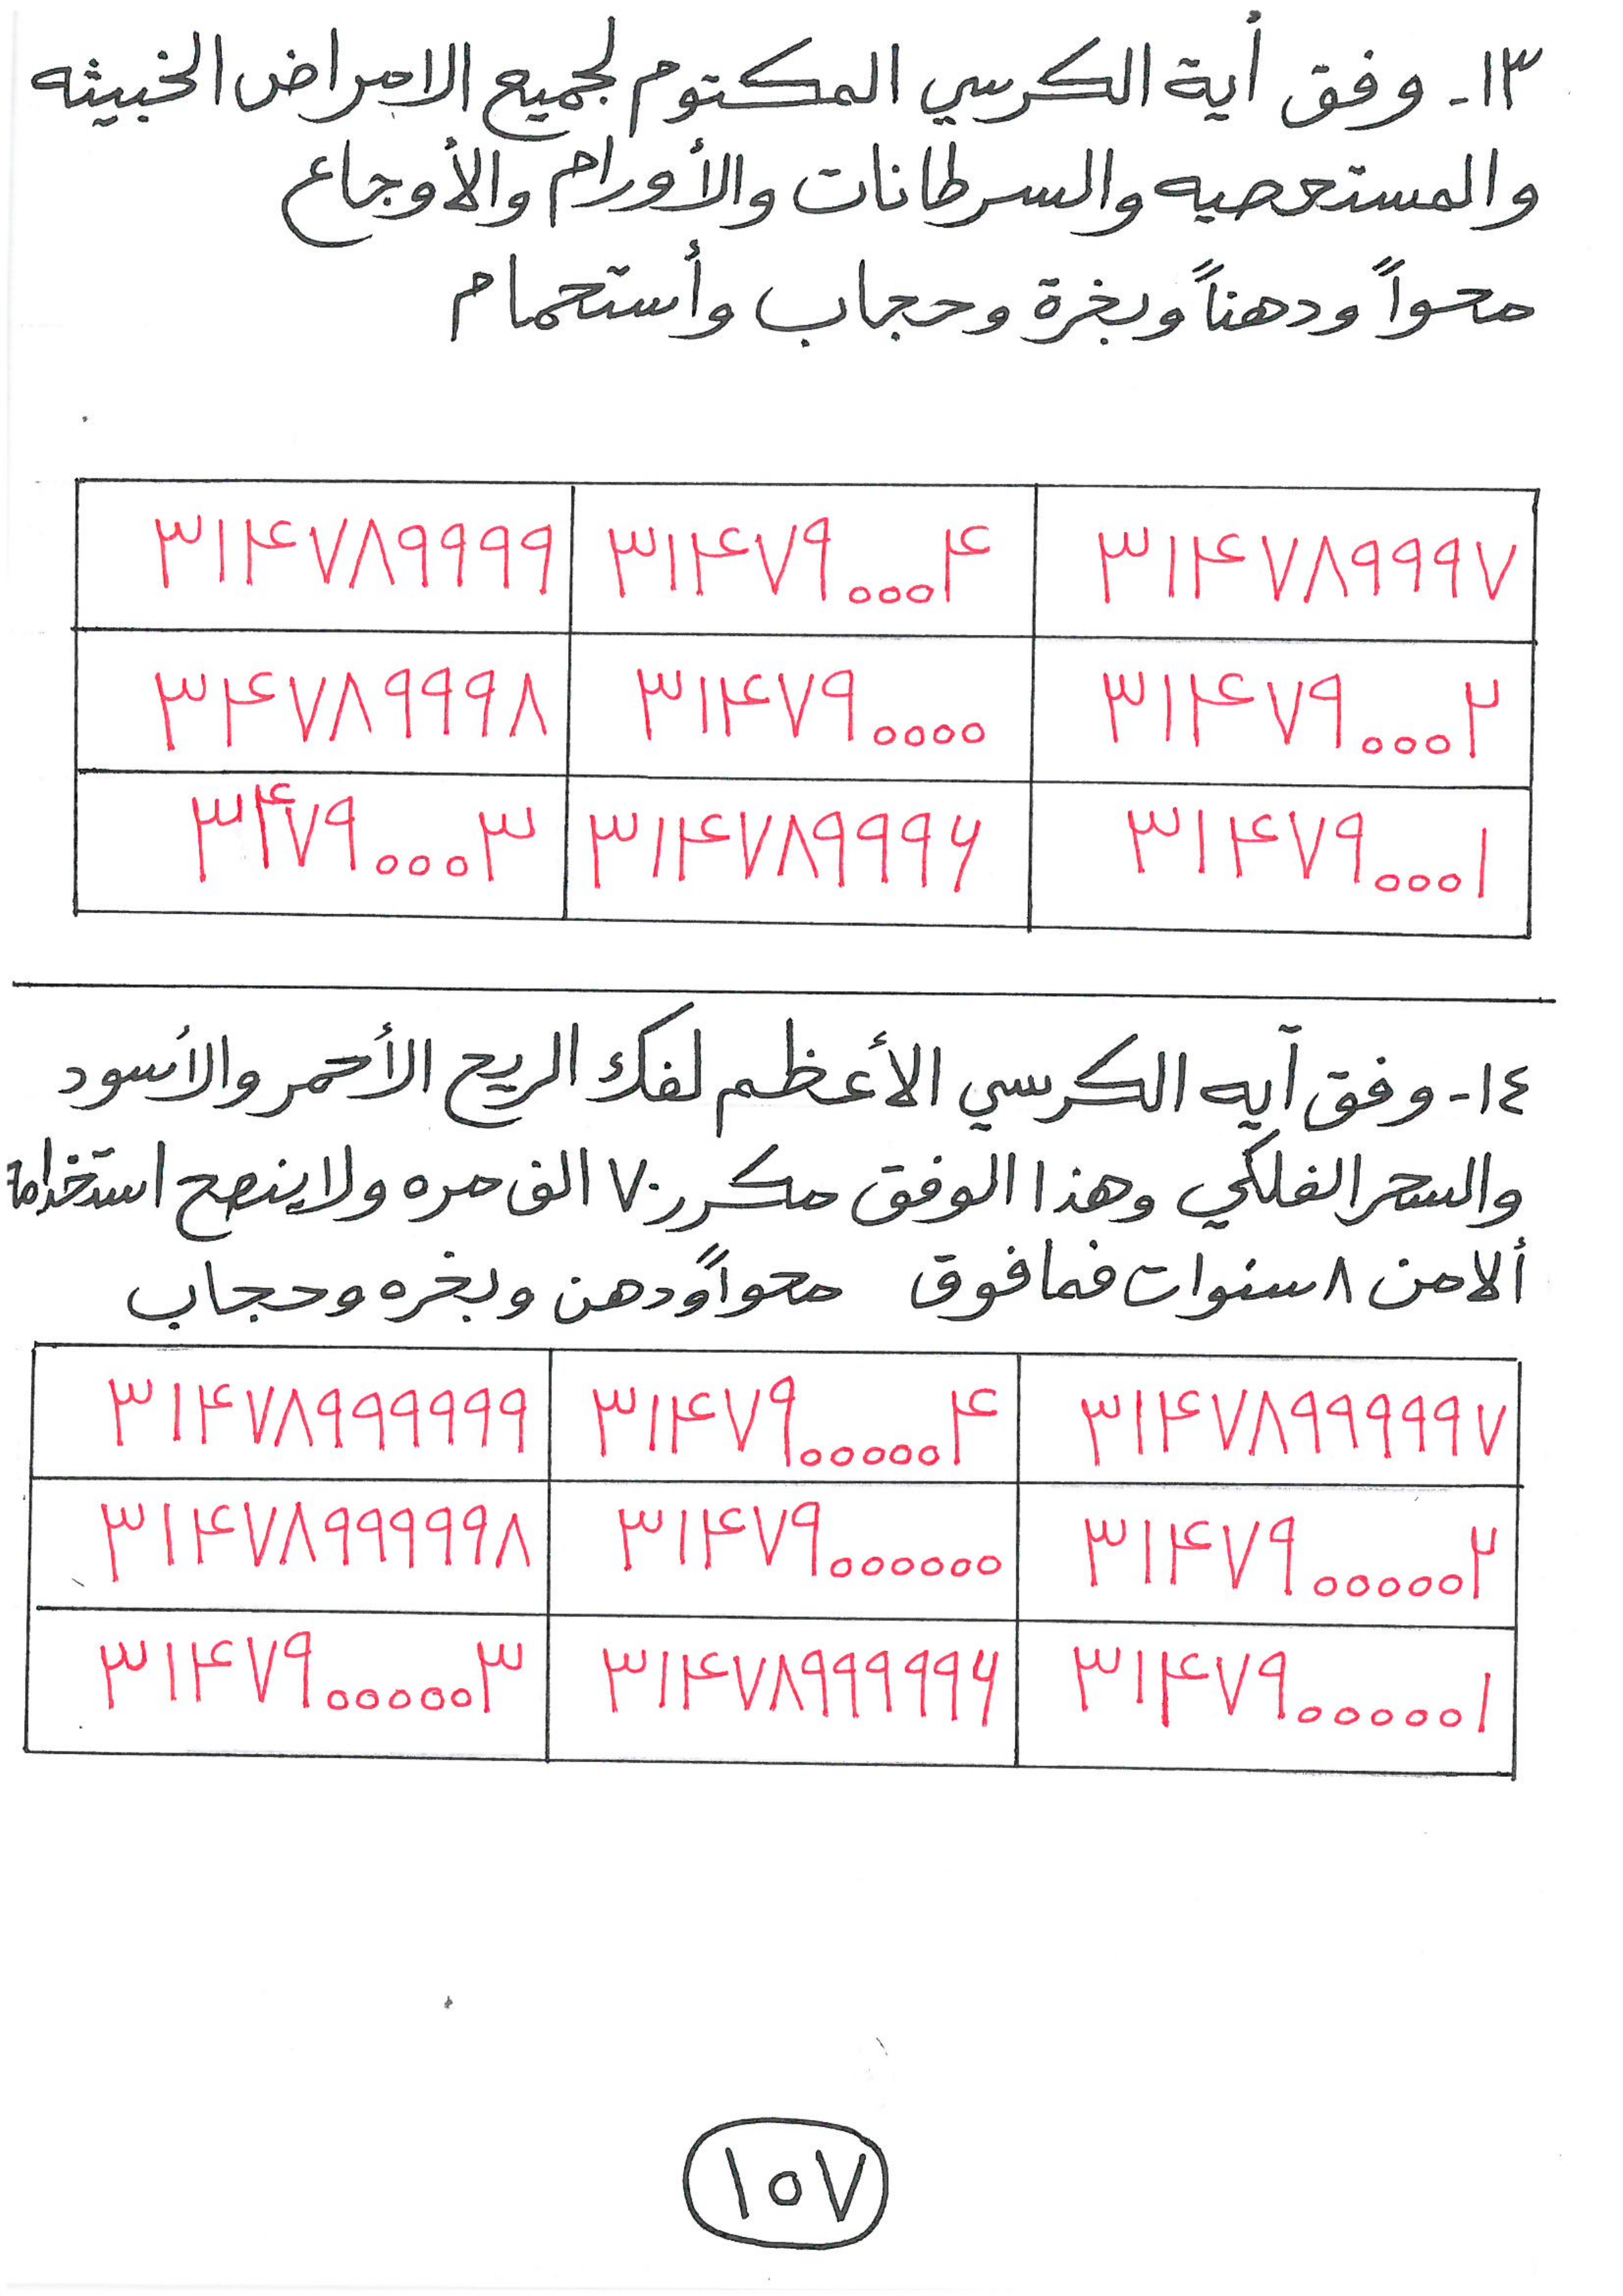 ١٣- وفق أية الكرسي المكتوم لجميع الامراض الخبيثه
والمستعصيه والسرطانات والأورام والأوجاع
محواً ودهناً وبخرة وحجاب وأستحمام
٣١۴٧٨٩٩٩٩ ٣١۴٧٩٠٠٠۴ ٣١۴٧٨٩٩٩٧
٣۴٧٨٩٩٩٨ ٣١۴٧٩٠٠٠٠ ٣١۴٧٩٠٠٠٢
٣۴٧٩٠٠٠٣ ٣١۴٧٨٩٩٩۶ ٣١۴٧٩٠٠٠١
١٤- وفق آيه الكرسي الأعظم لفك الريح الأحمر والأسود
والسحر الفلكي وهذا الوفق مكرر ٧٠ الف مره ولا ينصح استخدامة
ألا من ٨ سنوات فما فوق محواً ودهن وبخره وحجاب
٣١۴٧٨٩٩٩٩٩٩ ٣١۴٧٩٠٠٠٠٠۴ ٣١۴٧٨٩٩٩٩٩٧
٣١۴٧٨٩٩٩٩٩٨ ٣١۴٧٩٠٠٠٠٠٠ ٣١۴٧٩٠٠٠٠٠٢
٣١۴٧٩٠٠٠٠٠٣ ٣١۴٧٨٩٩٩٩٩۶ ٣١۴٧٩٠٠٠٠٠١
١٥٧